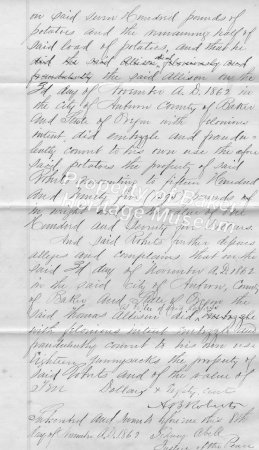 on said seven Hundred pounds of
potatoes and the remaining half of
said load of potatoes, and that he
and the said Allison did feloniously and
fraudulently the said Allison on the
day of November A.D. 1862 in
the City of Auburn County of Baker
and State of Oregon with felonious
intent did embezzle and fraudu-
lently convert to his own use the afore
said potatoes the property of said
Roberts amounting to fifteen Hundred
and Ninety five pounds
in weight
Hundred and Seventy five
And said Roberts further deposes
alleges and complains that on the
said day of November A.D. 1862
in the said City of Auburn, County
of Baker and State of Oregon the
said Thomas Allison did embezzle
with felonious intent embezzle and
fraudulently convert to his own use
Eighteen gunnysacks the property of
said Roberts and of the value of
Dollars & Eighty cents
Roberts
Subscribed and sworn to before me this 8th
day of November A.D. 1862 Sidney Abell
Justice of the Peace
Property of Baker
Heritage Museum